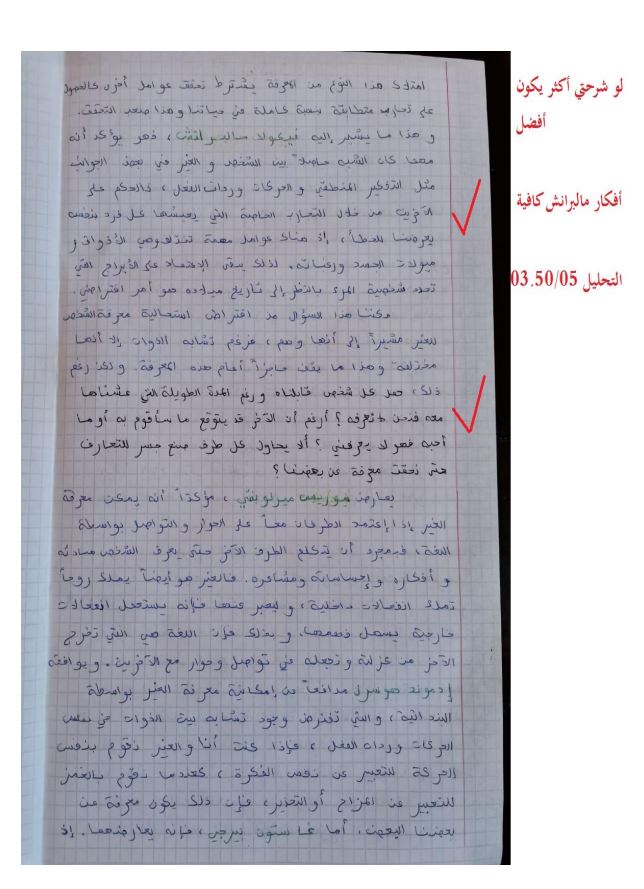 امتلاك هذا النوع من المعرفة يشترط تحقق عوامل أخرى كالحصول
على تجارب متطابقة بنسبة كاملة في حياتنا وهذا صعب التحقق.
و هذا ما يشير إليه نيكولا مالبرانش، فهو يؤكد أنه
مهما كان الشبه حاصلاً بين الشخص و الغير في بعض الجوانب
مثل التفكير المنطقي و الحركات وردات الفعل، فالحكم على
الآخرين من خلال التجارب الخاصة التي يعيشها كل فرد بنفسه
يعرضنا للخطأ، إذ هناك عوامل مهمة تختلف الأذواق و
ميولات الجسد ورغباته. لذلك يبقى الإعتماد على الأبراج التي
تحدد شخصية المرء بالنظر إلى تاريخ ميلاده هو أمر افتراضي.
مكننا هذا السؤال من افتراض استحالية معرفة الشخص
للغير مشيراً إلى أنها وهم، فرغم تشابه الذوات إلا أنها
مختلفة وهذا ما يقف حاجزاً أمام هذه المعرفة. ولكن رغم
ذلك، هل كل شخص قابلناه و رغم المدة الطويلة التي عشناها
معه فنحن لا نعرفه؟ أرغم أن الآخر قد يتوقع ما سأقوم به أو ما
أحبه فهو لا يعرفني؟ ألا يحاول كل طرف صنع جسر للتعارف
حتى نحقق معرفة عن بعضنا؟
يعارض موريس ميرلوبنتي، مؤكداً أنه يمكن معرفة
الغير إذا إعتمد الطرفان معاً على الحوار و التواصل بواسطة
اللغة، فبمجرد أن يتكلم الطرف الآخر حتى يعرف الشخص مبادئه
و أفكاره و إحساساته ومشاعره. فالغير هو أيضاً يملك روحاً
تملك انفعالات داخلية، و ليعبر عنها فإنه يستعمل انفعالات
خارجية يسهل فهمها. و بذلك فإن اللغة هي التي تخرج
الآخر من عزلته و تجعله في تواصل وحوار مع الآخرين. ويوافقه
إدموند هوسرل مدافعاً عن إمكانية معرفة الغير بواسطة
البينذاتية، والتي تفترض وجود تشابه بين الذوات في نفس
الحركات وردات الفعل، فإذا كنت أنا والغير نقوم بنفس
الحركة للتعبير عن نفس الفكرة، كعندما نقوم بالغمز
للتعبير عن المزاح أو التحذير، فإن ذلك يكون معرفة عن
بعضنا البعض. أما غاستون بيرجي، فإنه يعارضهما. إذ
لو شرحتي أكثر يكون
أفضل
أفكار مالبرانش كافية
التحليل 03.50/05